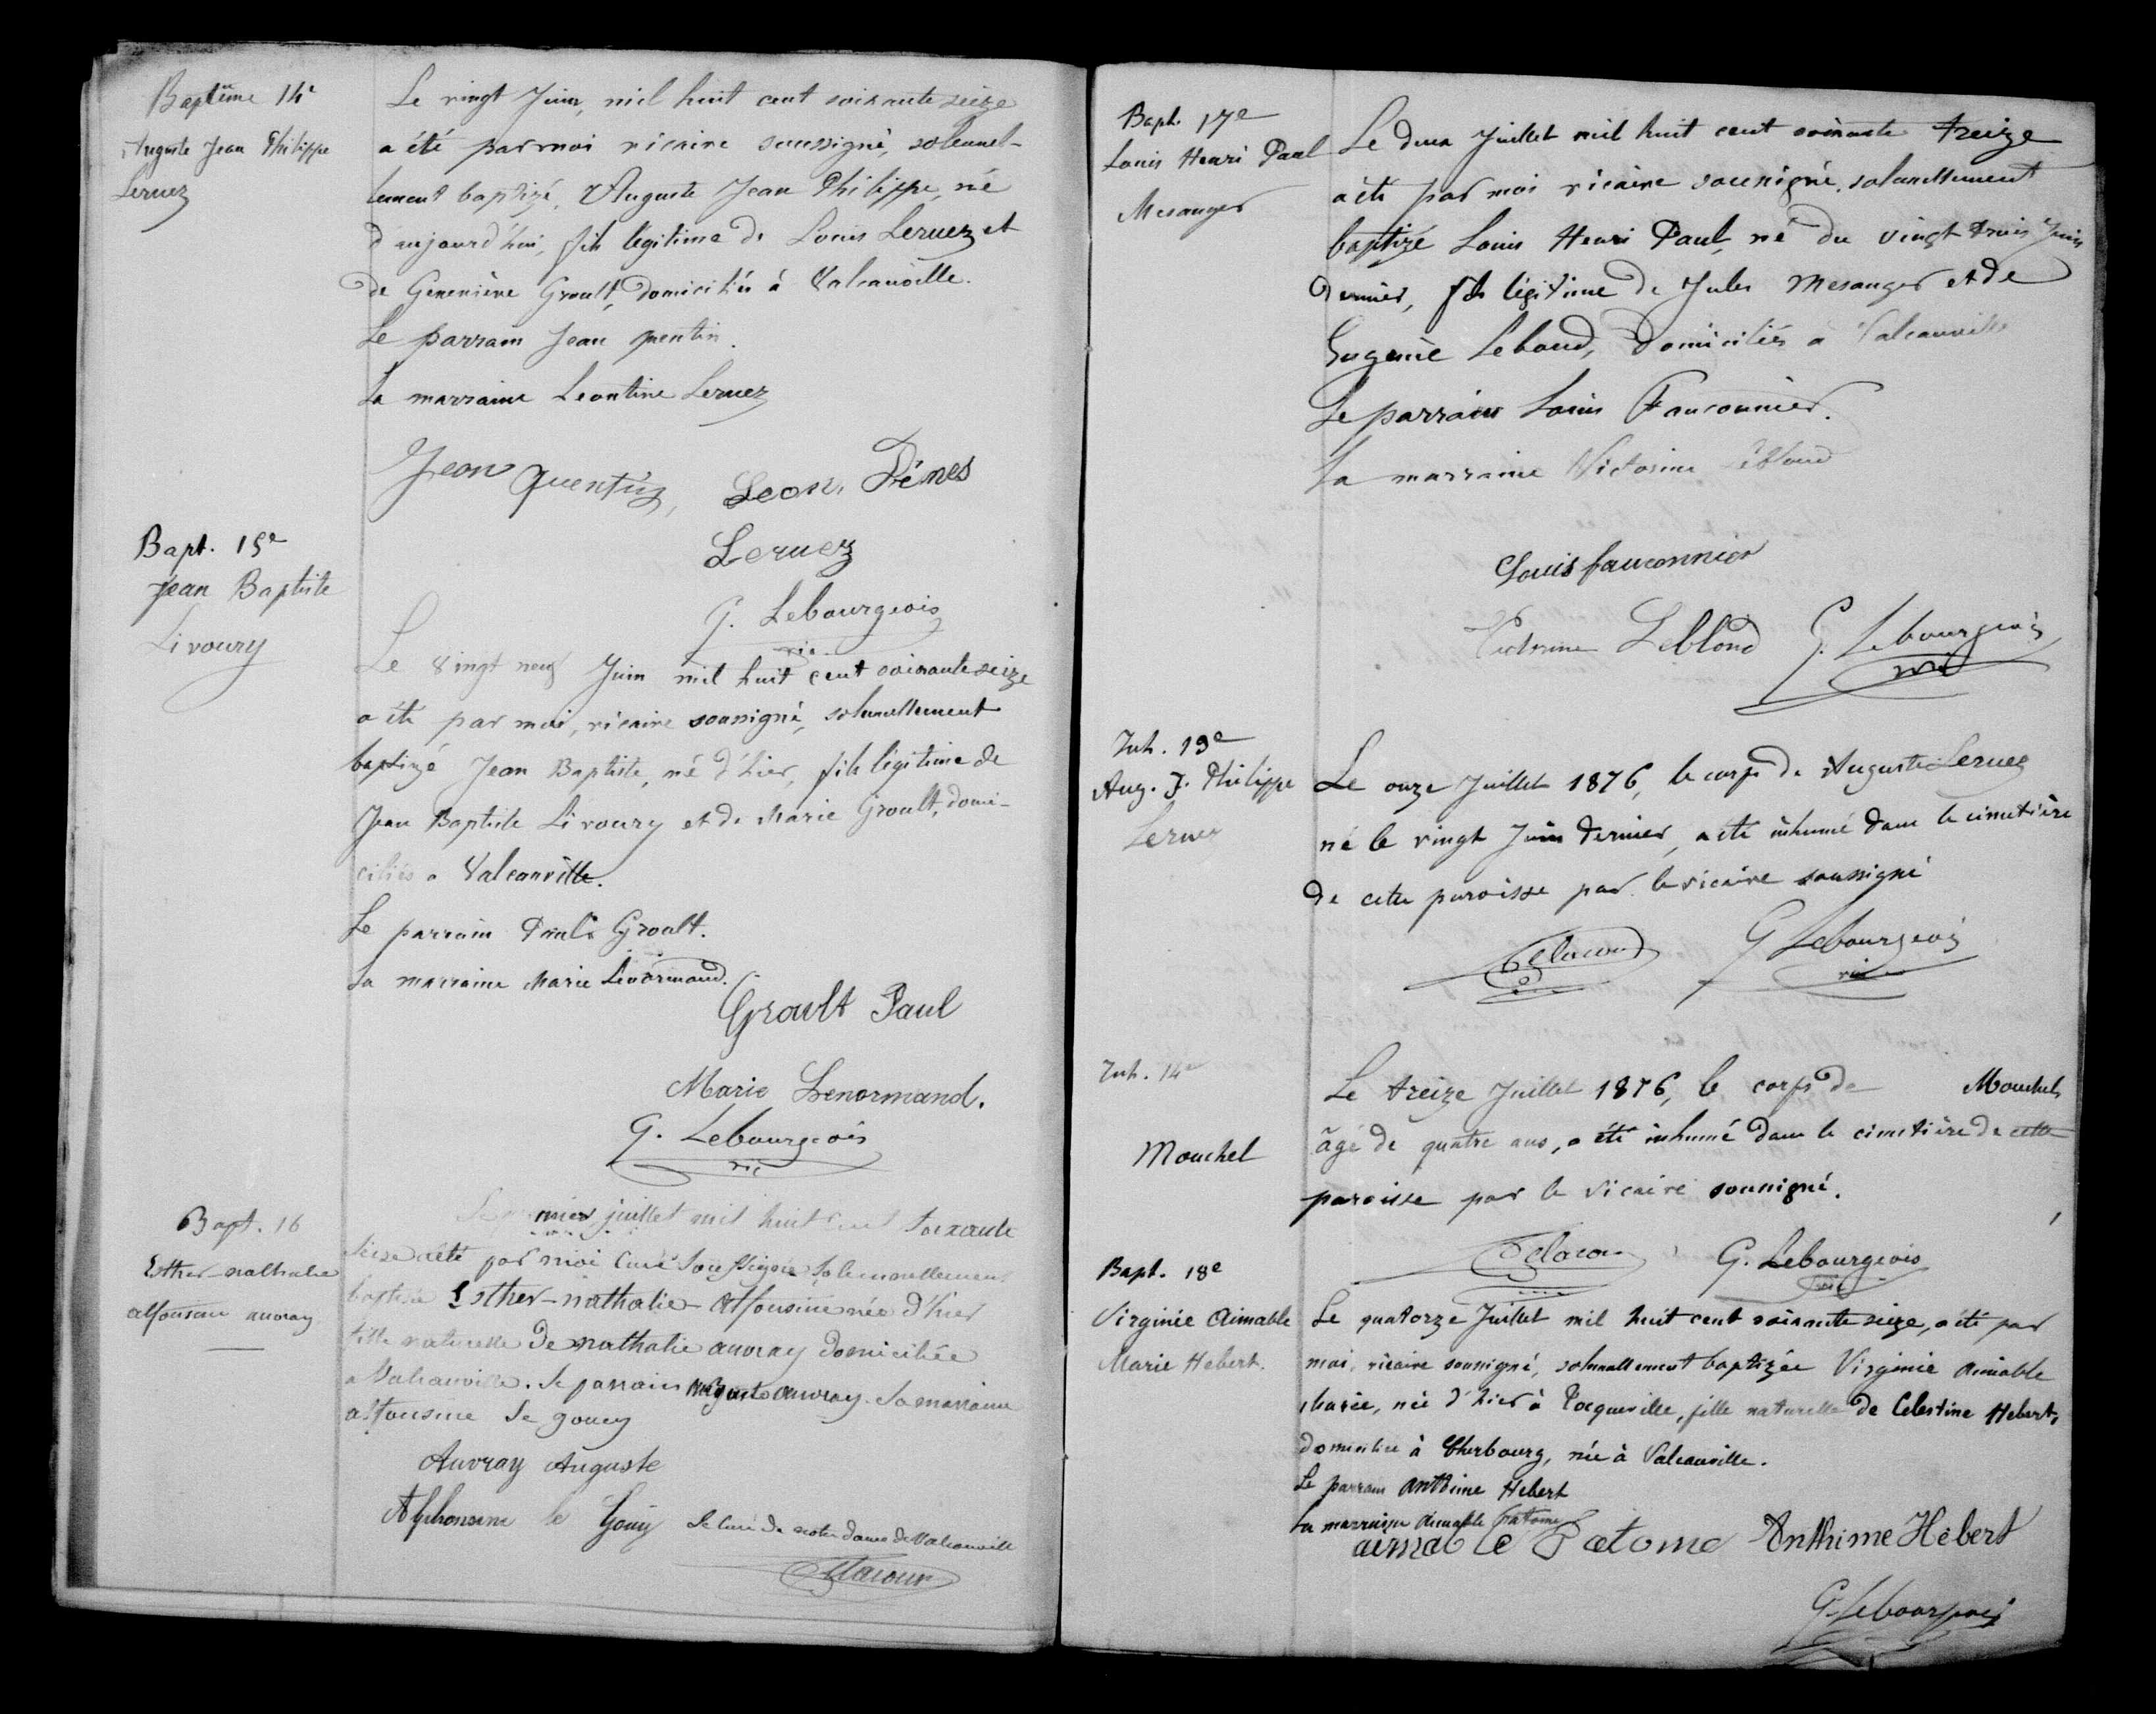 Baptême 14e
Auguste Jean Philippe
Leruez
Le vingt Juin, mil huit cent soixante seize
a été par moi vicaire soussigné, solennel-
lement baptizé, Auguste Jean Philippe, né
d'aujourd'hui, fils légitime de Louis Leruez et
de Geneviève Groult, domiciliés à Valcanville.
Le parrain Jean quentin.
La marraine Leontine Leruez
Jean quentin, Leon Dénes
Leruez
G. Lebourgeois
vic.
Bapt. 15e
Jean Baptiste
Livoury
Le vingt neuf Juin mil huit cent soixante seize
a été par moi, vicaire soussigné, solennellement
baptizé Jean Baptiste, né d'hier, fils légitime de
Jean Baptiste Livoury et de Marie Groult, domi-
ciliés a Valcanville.
Le parrain Groult.
La marraine Marie Lenormand.
Groult Paul
Marie Lenormand.
G. Lebourgeois
vic
Bapt. 16
Esther-nathalie
alfonsine auvray
Le premier juillet mil huit cent soixante
seize a été par moi curé soussigné solennellement
baptisée Esther-nathalie-alfonsine née d'hier
fille naturelle de nathalie auvray domiciliée
a Valcanville. Le parrain auguste auvray. La marraine
alfonsine le gouey
Auvray Auguste
Alphonsine le Gouey Le curé de notre dame de Valcanville
Delacour
Bapt. 17e
Louis Henri Paul
Mesanger
Le deux Juillet mil huit cent soixante treize
a été par moi vicaire soussigné, solennellement
baptizé Louis Henri Paul, né du vingt trois Juin
dernier, fils légitime de Jules Mesanger et de
Eugenie Leblond, domiciliés a Valcanville
Le parrain Louis Fauconnier.
La marraine Victorine Leblond
Louis fauconnier
Victorine Leblond G. Lebourgeois
vic
Inh. 13e
Aug. J. Philippe
Leruez
Le onze Juillet 1876, le corps de Auguste Leruez
né le vingt Juin dernier, a été inhumé dans le cimetière
de cette paroisse par le vicaire soussigné
Delacour G Lebourgeois
vic
Inh. 14e
Mouchel
Le treize Juillet 1876, le corps de Mouchel
âgé de quatre ans, a été inhumé dans le cimetière de cette
paroisse par le vicaire soussigné.
Delacour G. Lebourgeois
vic
Bapt. 18e
Virginie Aimable
Marie Hebert.
Le quatorze Juillet mil huit cent soixante seize, a été par
moi, vicaire soussigné, solennellement baptizée Virginie Aimable
Marie, née d'hier à Tocqueville, fille naturelle de Celestine Hebert,
domiciliée à Cherbourg, née à Valcanville.
Le parrain Anthime Hebert
La marraine Aimable Patome
aimable Patome Anthime Hébert
G. Lebourgeois